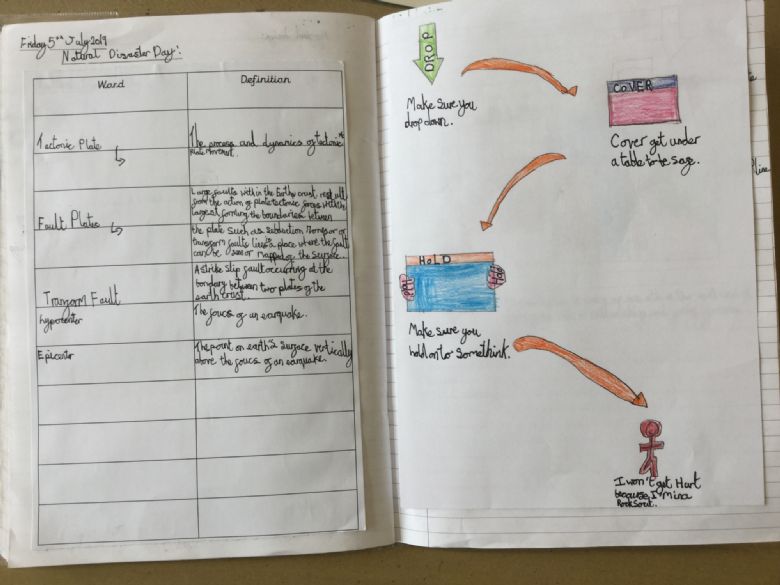 Friday 5th July 2019
Natural Disaster Day:
Word
Definition
Tectonic Plate
The process and dynamics of tectonic
Plate Movement.
Fault Plates
Large faults within the Earths crust, result
from the action of plate tectonic forces with the
largest forming the boundaries between
the plate such as subduction or
transform faults place where the fault
can be or Mapped on the surface.
Transform Fault
A strike slip fault occurring at the
bondary between two plates of the
earth crust.
hypocenter
The foucs of an earquake.
Epicenter
The point on earth's surface vertically
above the foucs of an earquake.
DROP
Make sure you
drop down.
COVER
Cover get under
a table to be sage.
HOLD
Make sure you
hold on to somethink.
I won't get Hurt
because I'm in a